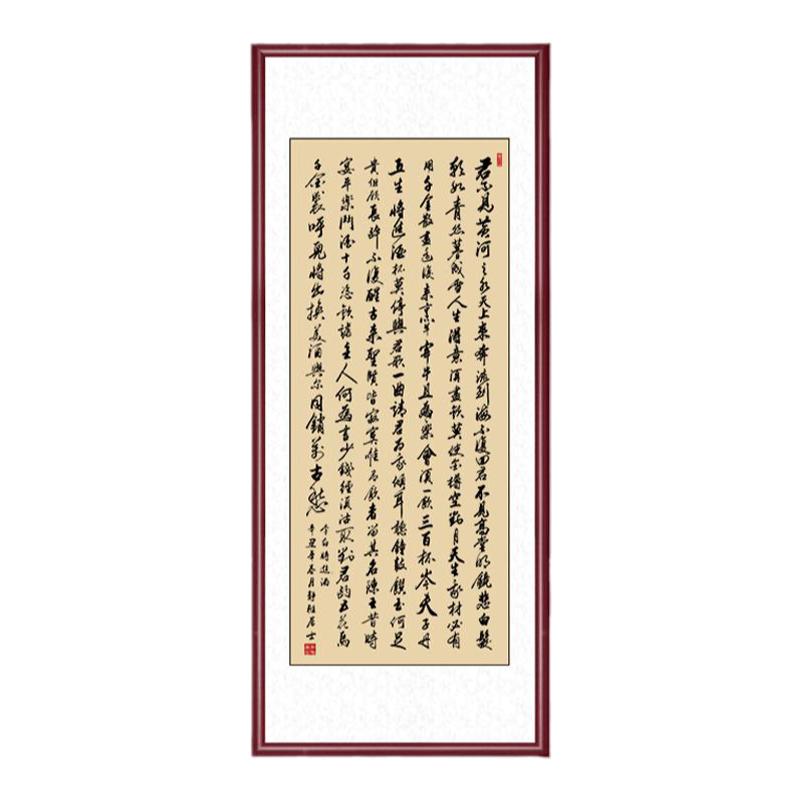 君不見黃河之水天上來奔流到海不復回君不見高堂明鏡悲白髮
朝如青絲暮成雪人生得意須盡歡莫使金樽空對月天生我材必有
用千金散盡還復來烹羊宰牛且為樂會須一飲三百杯岑夫子丹
丘生將進酒杯莫停與君歌一曲請君為我傾耳聽鐘鼓饌玉何足
貴但願長醉不復醒古來聖賢皆寂寞惟有飲者留其名陳王昔時
宴平樂鬥酒十千恣歡謔主人何為言少錢徑須沽取對君酌五花馬
千金裘呼兒將出換美酒與爾同銷萬古愁
李白將進酒
辛丑年春月靜居士